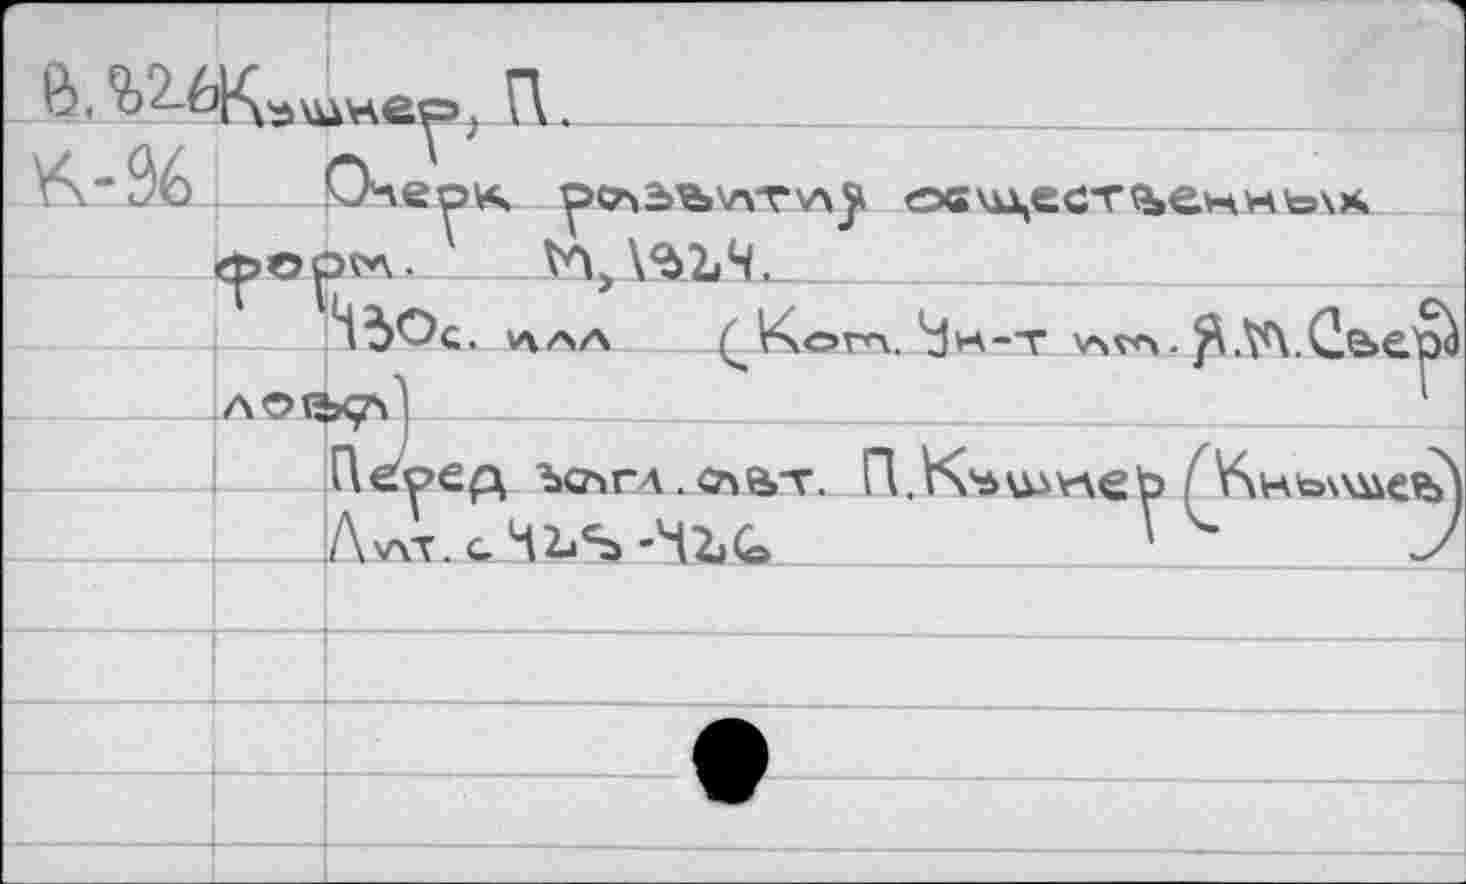 В.826 Кушнер, П.
К-96 Очерк развития общественных
форм. М., 1924.
430с. илл (Ком. Ун-т им. Я.М. Сверд
лова)
Перед загл. авт. П. Кушнер (Кнышев)
Лит. с 425-426